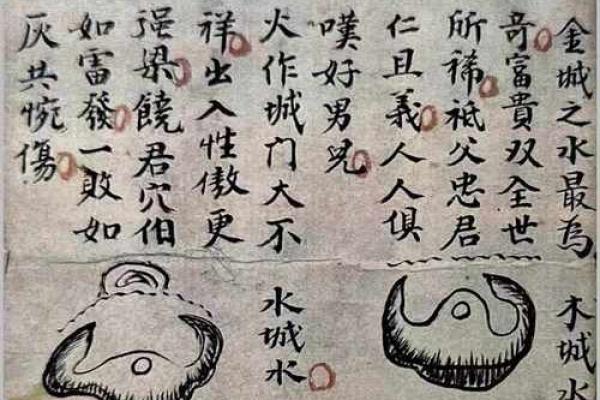 金城之水最為
奇富貴双全世
所稀祗父忠君
仁且義人人俱
嘆好男兒
火作城门大不
祥出入性傲更
强梁饒君穴伯
如雷發一敗如
灰共惋傷
木城水
水城水